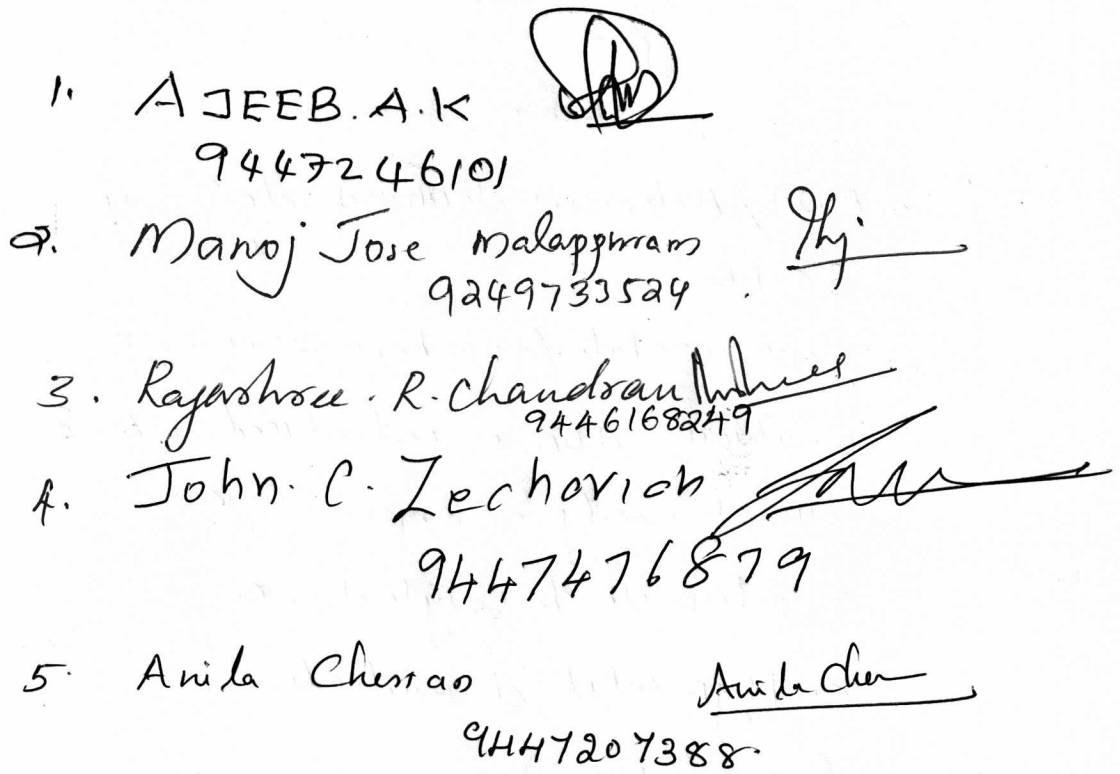 1. AJEEB. A.K
9447246101
2. Manoj Jose Malappuram
9249733524.
3. Rajashree. R. Chandran
9446168249
4. John. C. Zechovich
9447476879
5. Anila Cherian Anila Cher
9447207388.